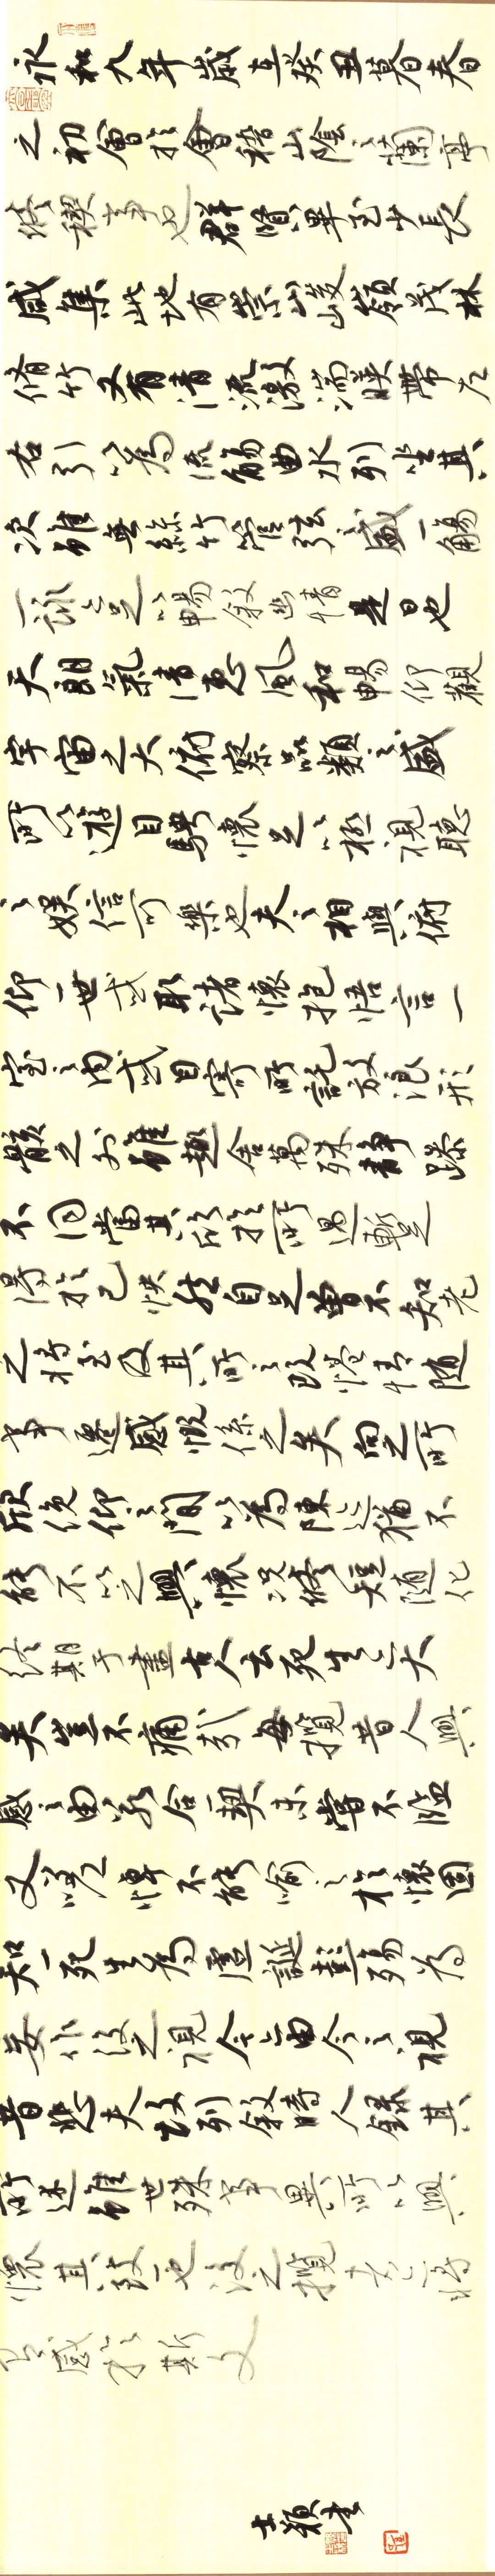 永和九年歲在癸丑暮春
之初會於會稽山陰之蘭亭
修稧事也群賢畢至少長
咸集此地有崇山峻嶺茂林
脩竹又有清流激湍暎帶左
右引以為流觴曲水列坐其
次雖無絲竹管弦之盛一觴
一詠亦足以暢敘幽情是日也
天朗氣清惠風和暢仰觀
宇宙之大俯察品類之盛
所以遊目騁懷足以極視聽
之娛信可樂也夫之相與俯
仰一世或取諸懷抱悟言一
室之內或因寄所託放浪形
骸之外雖趣舍萬殊靜躁
不同當其欣於所遇暫
得於己快然自足曾不知老
之將至及其所之既惓情隨
事遷感慨係之矣向之所
欣俛仰之間以為陳迹猶不
能不以之興懷況修短隨化
終期于盡古人云死生亦大
矣豈不痛哉每攬昔人興
感之由若合一契未嘗不臨
文嗟悼不能喻之於懷固
知一死生為虛誕彭殤為
妄作後之視今亦由今之視
昔悲夫故列敘時人錄其
所述雖世殊事異所以興
懷其致一也後之攬者亦將
有感於斯文
士穎書